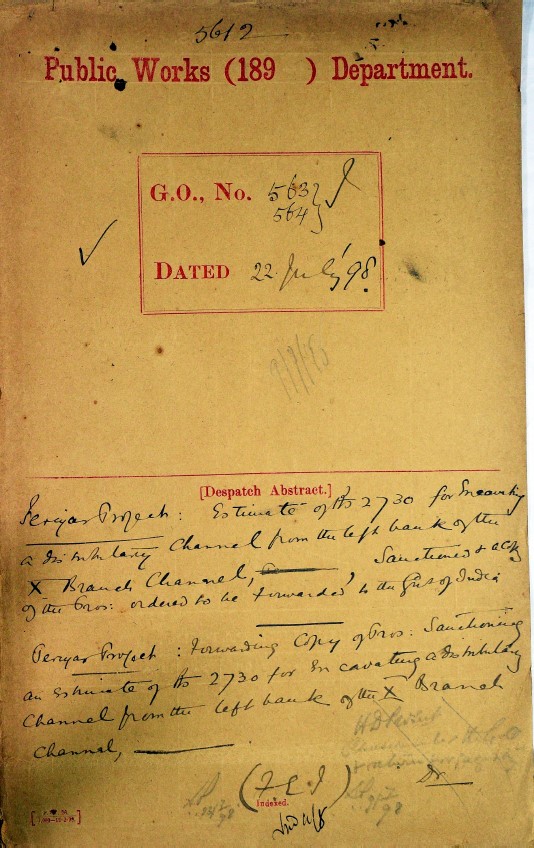 5612
Public Works (189 ) Department.
G.O., No. 563
564
DATED 22 July '98.
[Despatch Abstract.]
Periyar Project: Estimate of Rs 2730 for Excavating
a distributary Channel from the left bank of the
X Branch Channel, Sanctioned & a Copy
of the Pros: ordered to be forwarded to the Govt of India
Periyar Project: Forwarding Copy of Pros: Sanctioning
an Estimate of Rs 2730 for Excavating a distributary
Channel from the left bank of the X Branch
Channel,
Indexed.